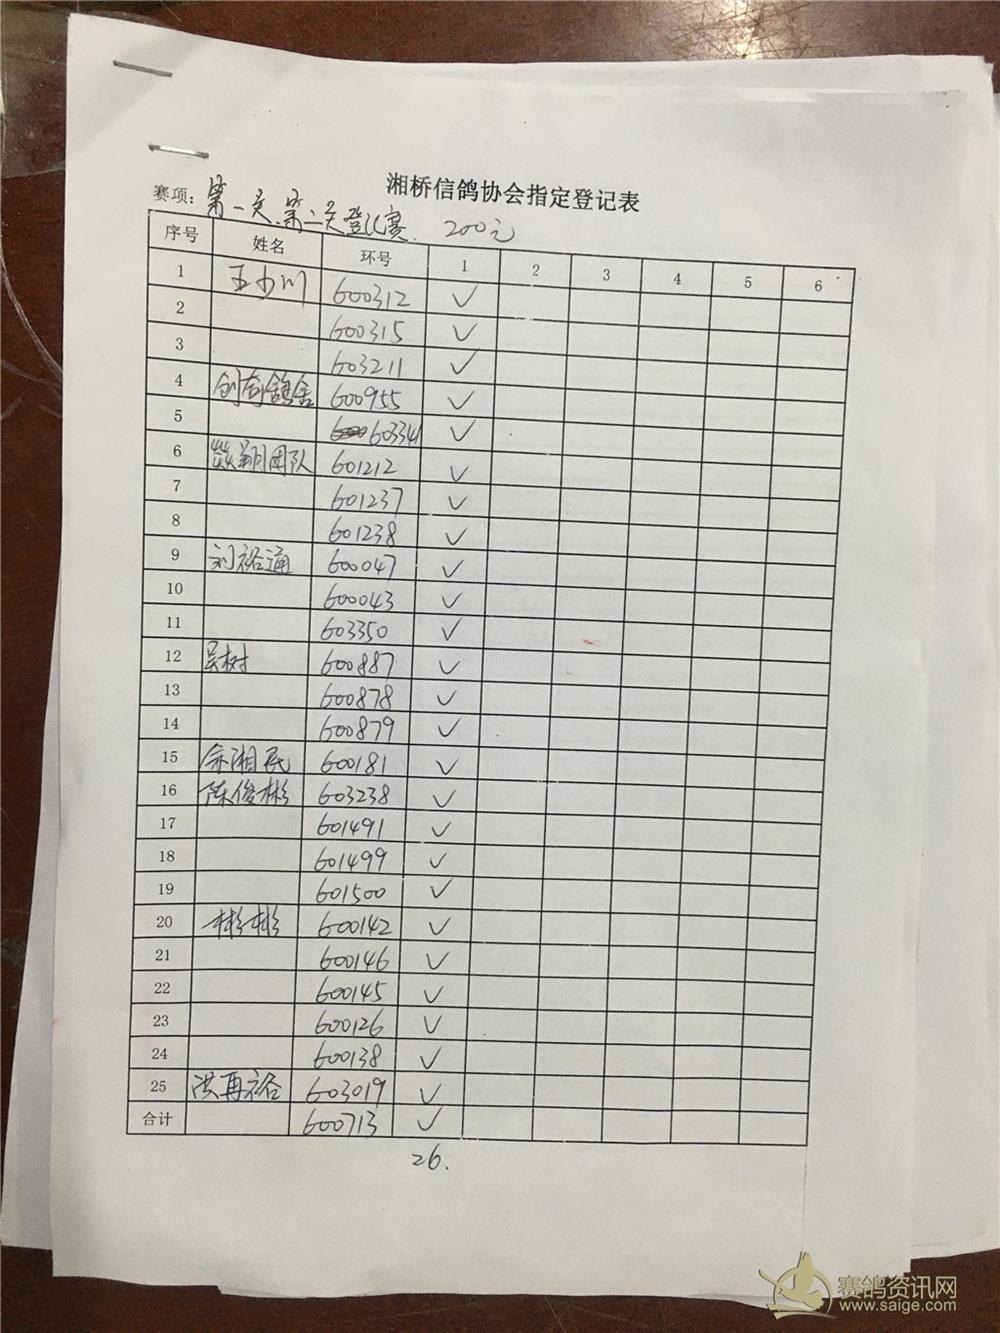 湘桥信鸽协会指定登记表
赛项: 第一关、第二关登记赛. 200元
序号 姓名 环号 1 2 3 4 5 6
1 王少川 600312 ✓
2 600315 ✓
3 603211 ✓
4 创奇鸽舍 600955 ✓
5 603341 ✓
6 翔团队 601212 ✓
7 601237 ✓
8 601238 ✓
9 刘裕通 600047 ✓
10 600043 ✓
11 603350 ✓
12 吴树 600887 ✓
13 600878 ✓
14 600879 ✓
15 余湘民 600181 ✓
16 陈俊彬 603238 ✓
17 601491 ✓
18 601499 ✓
19 601500 ✓
20 彬彬 600142 ✓
21 600146 ✓
22 600145 ✓
23 600126 ✓
24 600138 ✓
25 洪再裕 603019 ✓
合计 600713 ✓
26.
赛鸽资讯网
www.saige.com